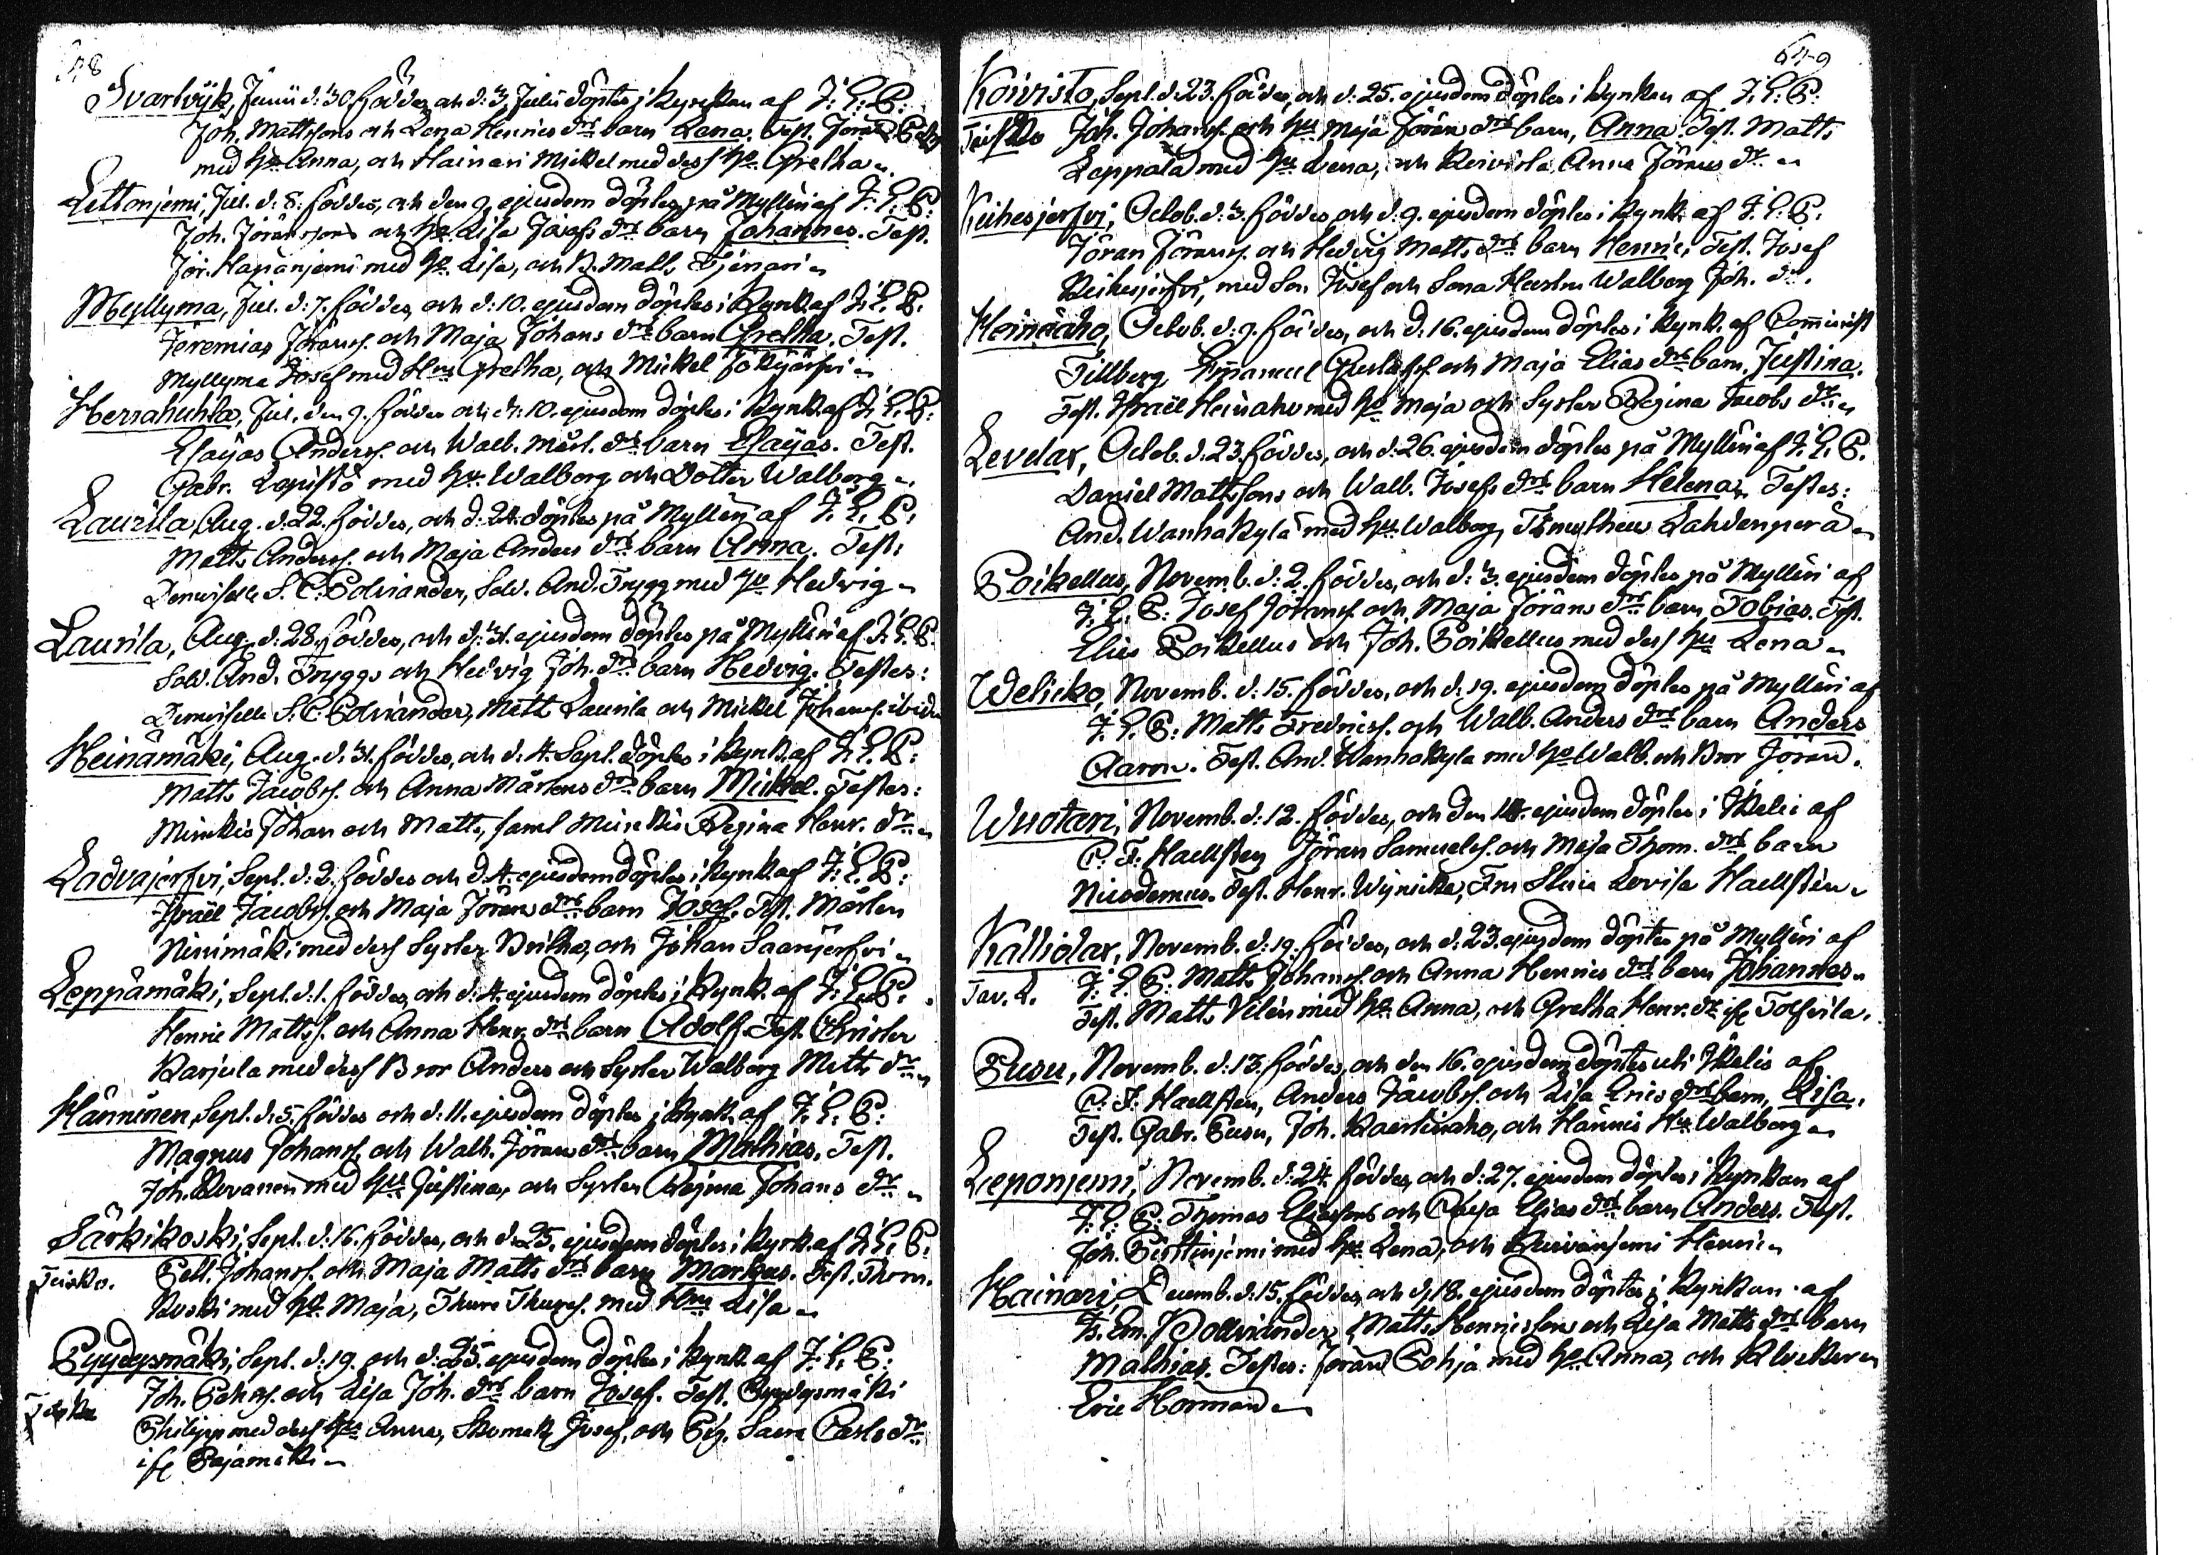 48
Svartvijk, Junii d: 30 föddes, och d: 3. Julii döptes i Kyrckan af J: E: P:
Joh. Mattssons och Lena Henrics drs barn Lena. Test. Jöran
med hu Anna, och Hainari Mickel med dess hu Gretha
Lettonjemi, Jul. d: 8. föddes, och den 9. ejusdem döptes på Mylleri af J: E: P:
Joh. Jöranssons och hu Lisa Josefs drs barn Johannes. Test.
Jör. Hapanjemi med hu Lisa, och B. Matts
Myllyma, Jul. d: 7. föddes, och d: 10. ejusdem döptes i Kyrck. af J: E: P:
Jeremias Jöranss. och Maja Johans drs barn Gretha. Test.
Myllyma Josef med Hru Gretha, och Mickel
Herrahuhta, Jul. den 9. föddes och d: 10. ejusdem döptes i Kyrck. af J: E: P:
Elayas Anderss. och Walb. Mårt. drs barn Elayas. Test.
Gabr. Lepistö med hu Walborg och Dotter Walborg
Laurila, Aug. d: 22. föddes, och d: 24. döptes på Mylleri af J: E: P:
Matts Anderss. och Maja Anders drs barn Anna. Test:
Demiselle S. C. Polviander, Sold. And. Trygg med hu Hedvig
Laurila, Aug. d: 28. föddes, och d: 31. ejusdem döptes på Mylleri af J: E: P:
Sold. And. Tryggs och Hedvig Joh. drs barn Hedvig. Testes:
Demiselle S. C. Polviander, Matts Laurila och Mickel Johanss. ibidm
Heinämäki, Aug. d: 31. föddes, och d: 4. Sept. döptes i Kyrck. af J: E: P:
Matts Jacobss. och Anna Mårtens drs barn Mickel. Testes:
Minckio Johan och Matts, samt Minckio Regina Henr. dr
Ladvajerfvi, Sept. d: 2. föddes och d: 4. ejusdem döptes i Kyrck. af J: E: P:
Israël Jacobss. och Maja Jörans drs barn Josef. Test. Mårten
Ninimäki med dess Syster Britha, och Johan Saarijerfvi
Leppämäki, Sept. d: 1. föddes, och d: 4. ejusdem döptes i Kyrck. af J: E: P:
Henric Mattss. och Anna Henr. drs barn Adolf. Test. Christer
Karjula med dess Bror Anders och Syster Walborg Matts dr
Hänninen, Sept. d: 5. föddes och d: 11. ejusdem döptes i Kyrck. af J: E: P:
Magnus Johanss. och Walb. Jörans drs barn Mathias. Test.
Joh. med hu Justina, och Syster Regina Johans dr
Särkikoski, Sept. d: 16. föddes, och d: 25. ejusdem döptes i Kyrck. af J: E: P:
Teisko. Johanss. och Maja Matts drs barn Markus. Test. Thom.
Koski med hu Maja, Thure Thuress. med Hru Lisa
Pyydysmäki, Sept. d: 19. och d: 25. ejusdem döptes i Kyrck. af J: E: P:
Joh. och Lisa Joh. drs barn Josef. Test. Pyydysmäki
Teisko Philipp med dess hu Anna, Skomak. Josef, och Pig. Sara Carls dr
ifr Pajamäki
649
Koivisto, Sept. d: 23. föddes, och d: 25. ejusdem döptes i Kyrckan af J: E: P:
Teisko Joh. Johanss. och hu Maja Jörans drs barn, Anna. Test. Matts
Leppala med hu Lena, och Koivisto Anna Jörans dr
Keihesjerfvi, Octob. d: 3. föddes, och d: 9. ejusdem döptes i Kyrck. af J: E: P:
Jöran Jöranss. och Hedvig Matts drs barn Henric. Test. Josef
Keihesjerfvi, med Son Josef och Sona Hustru Walborg Joh. dr.
Heinäaho, Octob. d: 9. föddes, och d: 16. ejusdem döptes i Kyrck. af Comminist
Tillberg Emanuel Gustafss. och Maja Elias drs barn, Justina.
Test. Israël Heinaho med hu Maja och Syster Regina Jacobs dr
Levelax, Octob. d: 23. föddes, och d: 26. ejusdem döptes på Mylleri af J: E: P:
Daniel Mattssons och Walb. Josefs drs barn Helena. Testes:
And. Wanhakylä med hu Walborg, Timotheus Lahdenperä
Poikellus, Novemb. d: 2. föddes, och d: 3. ejusdem döptes på Mylleri af
J: E: P: Josef Jöranss. och Maja Jörans drs barn Tobias. Test.
Elias Poikellus och Joh. Poikellus med dess hu Lena
Welicko, Novemb. d: 15. föddes, och d: 19. ejusdem döptes på Mylleri af
J: E: P: Matts Fredricss. och Walb. Anders drs barn Anders
Aaron. Test. And. Wanhakyla med hu Walb. och Bror Jöran.
Wuotari, Novemb. d: 12. föddes, och den 14. ejusdem döptes i Ikalis af
C: F: Haellsten Jöran Samuelss. och Maja Thom. drs barn
Nicodemus. Test. Henr. Wijnicka, Fru Lovisa Haellsten
Kalliolax, Novemb. d: 19. föddes, och d: 23. ejusdem döptes på Mylleri af
Tav. L. J: E: P: Matts Johanss. och Anna Henrics drs barn Johannes
Test. Matts med hu Anna, och Gretha Henr. dr ifr Tolfvila.
Pusu, Novemb. d: 13. föddes, och den 16. ejusdem döptes uti Ikalis af
C: F: Haellsten, Anders Jacobss. och Lisa Erics drs barn, Lisa.
Test. Gabr. Pusu, Joh. och Hannis Hu Walborg
Leponjemi, Novemb. d: 24. föddes, och d: 27. ejusdem döptes i Kyrckan af
J: E: P: Thomas Eliassons och Caisa Elias drs barn Anders. Test.
Joh. med hu Lena, och Koivunjemi Henric
Hainari, Decemb. d: 15. föddes, och d: 18. ejusdem döptes i Kyrckan af
Em. Pollviander, Matts Henricsons och Lisa Matts drs barn
Mathias. Testes: Jöran Pohja med hu Anna, och Klockaren
Eric Horman